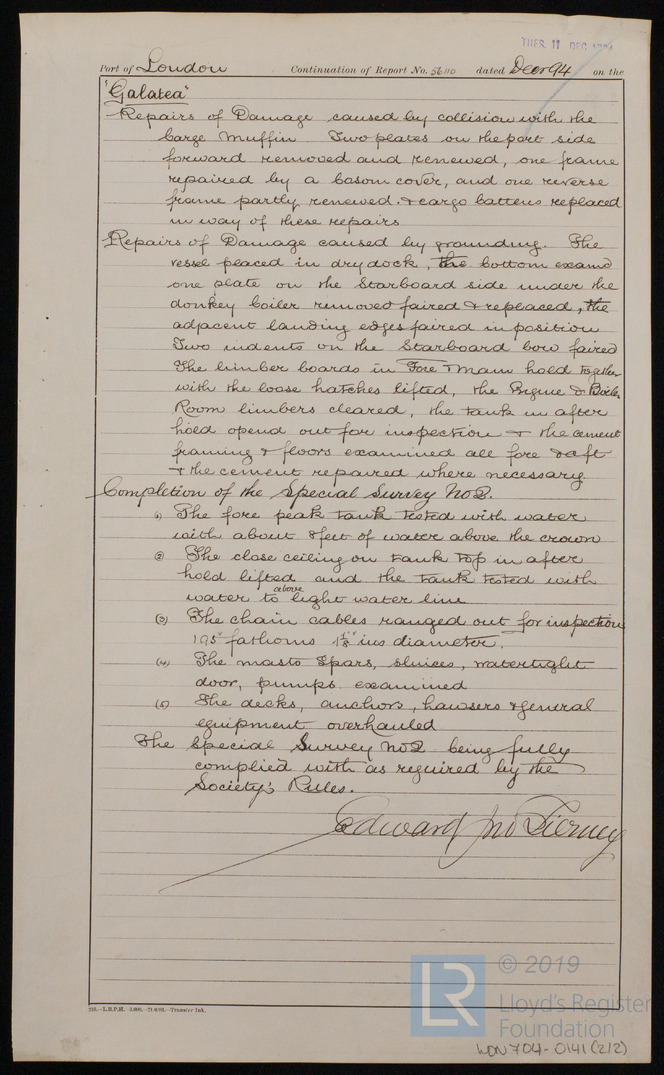 TUES. 11 DEC 1894
Port of London Continuation of Report No. dated Decr 94 on the
"Galatea"
Repairs of Damage caused by collision with the
barge Muffin Two plates on the port side
forward removed and renewed, one frame
repaired by a bosom cover, and one reverse
frame partly renewed. & cargo battens replaced
in way of these repairs
Repairs of Damage caused by grounding. The
vessel placed in dry dock, the bottom examd
one plate on the Starboard side under the
donkey boiler removed faired & replaced, the
adjacent landing edges faired in position
Two indents on the Starboard bow faired
The limber boards in Fore & Main hold together
with the loose hatches lifted, the Engine & Boiler
Room limbers cleared, the tank in after
hold opend out for inspection & the cement
framing & floors examined all fore & aft
& the cement repaired where necessary.
Completion of the Special Survey No 2.
(1) The fore peak tank tested with water
with about 8 feet of water above the crown
(2) The close ceiling on tank top in after
hold lifted and the tank tested with
water to above light water line
(3) The chain cables ranged out for inspection
195 fathoms ins diameter.
(4) The masts Spars, sluices, watertight
door, pumps examined
(5) The decks, anchors, hawsers & general
equipment overhauled
The Special Survey No 2 being fully
complied with as required by the
Society's Rules.
Edward Jno Tierney
210.—L.R.P.H.—3,000.—21.6.93.—Transfer Ink.
LR © 2019
Lloyd's Register
Foundation
LON 704-0141 (2/2)